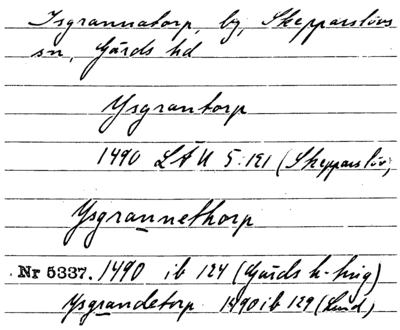 Isgrannatorp, by, Skepparslövs
sn, Gärds hd
Ysgrantorp
1490 LÄU 5:121 (Skepparslöv)
Ysgrannethorp
Nr 5337. 1490 ib 124 (Gärds h-ting)
Ysgrandetorp 1490 ib 129 (Lund)